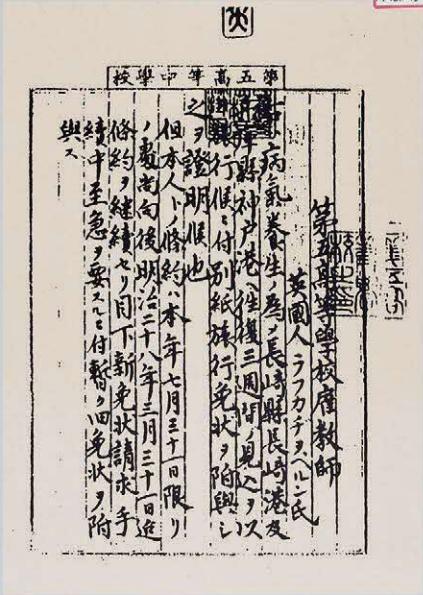 第五高等中學校
第五高等學校雇教師
英國人ラフカヂヲ、ヘルン氏
病氣養生ノ爲メ長崎縣長崎港及
縣神戸港ヘ往復三週間ノ見込ヲ以
旅行候ニ付別紙旅行免状ヲ附與シ
之ヲ證明候也
但本人トノ條約ハ本年七月三十一日限リ
ノ處尚向後明治二十八年三月三十一日迄
條約ヲ継續セリ目下新免状請求手
續中至急ヲ要スルニ付暫ク旧免状ヲ附
與ス